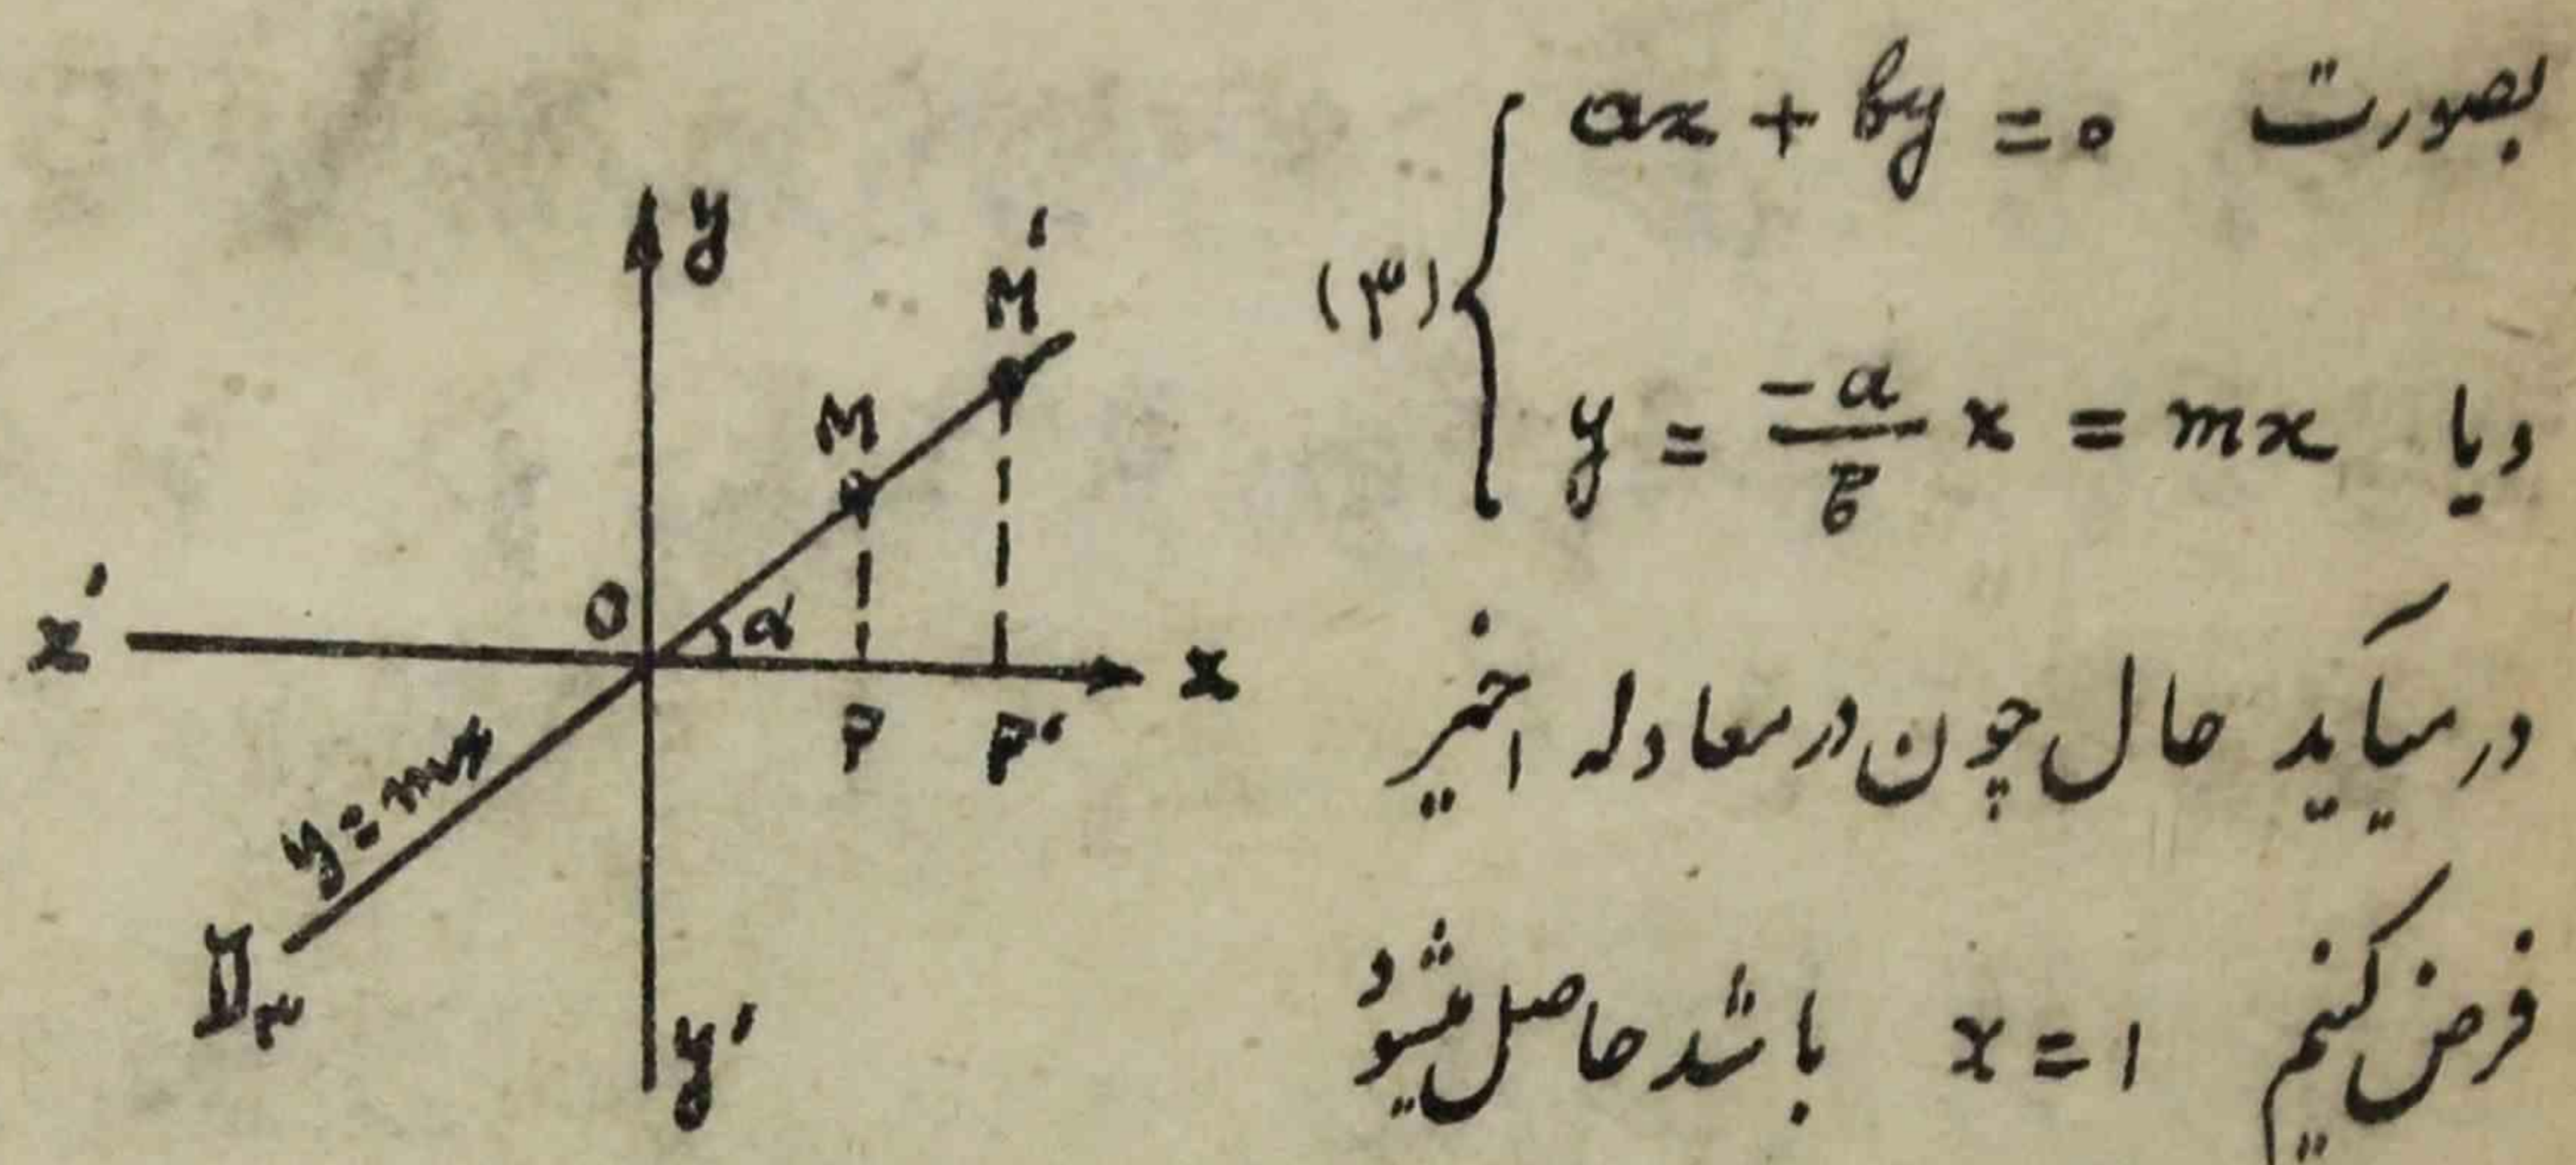 بصورت ax + by = ۰
(۳)
ویا y = -a/b x = mx
درمیآید حال چون در معادله اخیر
فرض کنیم x = ۱ باشد حاصل میشود
y
M'
M
x'
O
α
x
P
P'
y = mx
D۳
y'